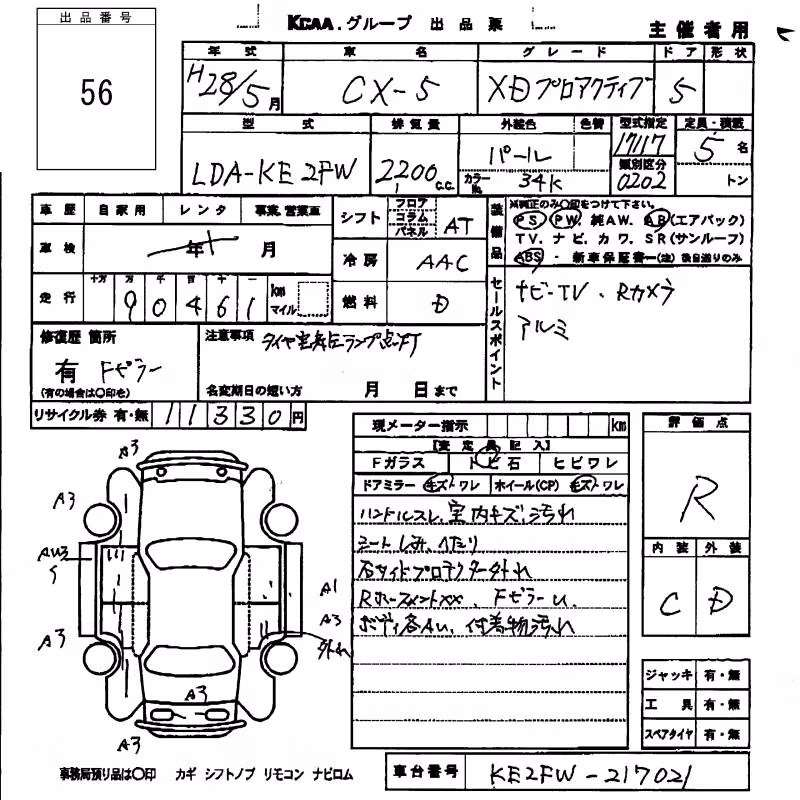 出品番号
56
KCAA.グループ 出品票
主催者用
年式 車名 グレード ドア 形状
H28/5月 CX-5 XDプロアクティブ 5
型式 排気量 外装色 色替 型式指定 定員・積載
LDA-KE2FW 2200 c.c. パール 17117 5名
カラーNo. 34K 類別区分 0202 トン
車歴 自家用 レンタ 事業.営業車
車検 年 月
走行 十万 万 千 百 十 一
90461 km マイル
シフト フロア コラム パネル AT
冷房 AAC
燃料 D
装備品
※純正のみ○印をつけて下さい。
PS. PW. 純AW. AB(エアバック)
TV. ナビ. カワ. SR(サンルーフ)
ABS ・ 新車保証書─(注) 後日送りのみ
セールスポイント
ナビ-TV、Rカメラ
アルミ
修復歴 箇所
有 Fピラー
(有の場合は○印を)
注意事項 タイヤ空気圧ランプ点灯
名変期日の短い方 月 日まで
リサイクル券 有・無 11330円
現メーター指示 km
【査定員記入】
Fガラス トビ石 ヒビワレ
ドアミラー キズ・ワレ ホイール(CP) キズ・ワレ
ハンドルスレ、室内キズ、汚れ
シートしみ、へたり
右サイドプロテクター外れ
Rホースメントxx、FピラーU、
ボディ各AU、付着物汚れ
評価点
R
内装 外装
C D
ジャッキ 有・無
工具 有・無
スペアタイヤ 有・無
A3
A3
AW3
A3
A1
A3
外れ
A3
A3
事務局預り品は○印 カギ シフトノブ リモコン ナビロム
車台番号 KE2FW-217021